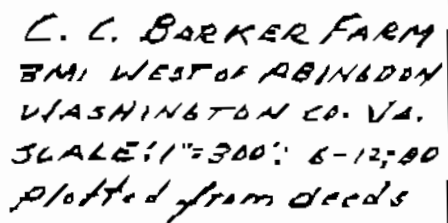 C. C. BARKER FARM
3MI WEST OF ABINGDON
WASHINGTON CO. VA.
SCALE: 1"=300': 6-12-80
Plotted from deeds